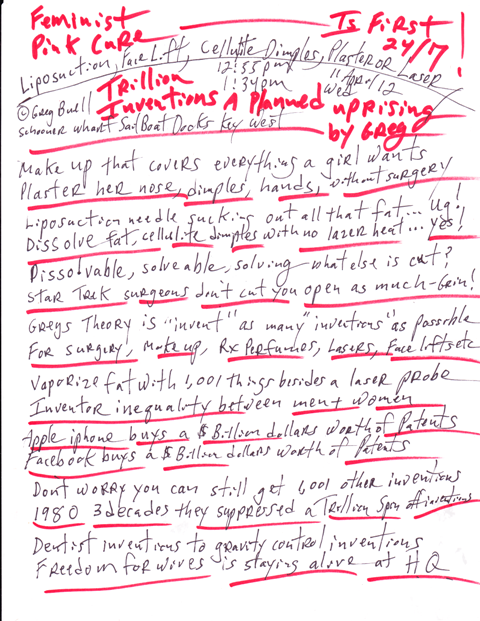 Feminist Is First
Pink Cure 24/7!
Liposuction, Face Lift, Cellulite Dimples, Plaster or Laser
12:33 pm
1:34 pm
11 April 12
Wed
Trillion
Inventions A Planned uprising
by Greg
© Greg Buell
Schooner Wharf SailBoat Docks Key West
Make up that covers everything a girl wants
Plaster her nose, dimples, hands, without surgery
Liposuction needle sucking out all that fat... Ug!
Dissolve fat, cellulite dimples with no lazer heat... yes!
Dissolvable, solveable, solving what else is cut?
Star Trek surgeons don't cut you open as much-Grin!
Gregs Theory is "invent" as many "inventions" as possible
For surgery, Make up, Rx Perfumes, Lasers, Face lifts etc
Vaporize fat with 1,001 things besides a laser probe
Inventor inequality between men + women
Apple iphone buys a $ Billion dollars worth of Patents
Facebook buys a $ Billion dollars worth of Patents
Dont worry you can still get 1,001 other inventions
1980 3 decades they suppressed a Trillion Spin off inventions
Dentist inventions to gravity control inventions
Freedom for wives is staying alive at HQ